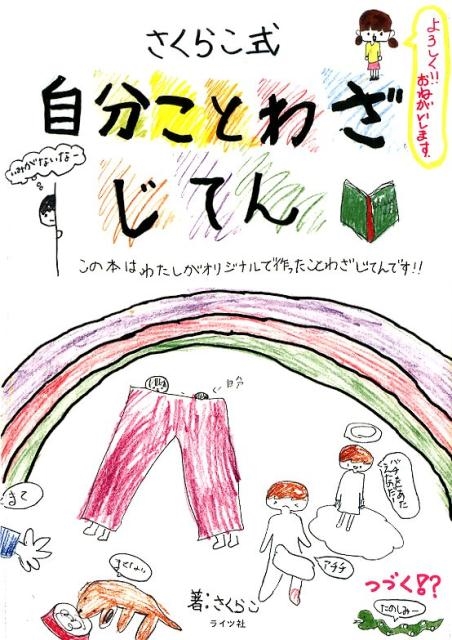 さくらこ式
よろしく!!
おねがいします。
自分ことわざ
じてん
この本はわたしがオリジナルで作ったことわざじてんです!!
自分
まて
バチをあた
えたのだ!
アチチ
つづく!?
たのしみー
著:さくらこ
ライツ社